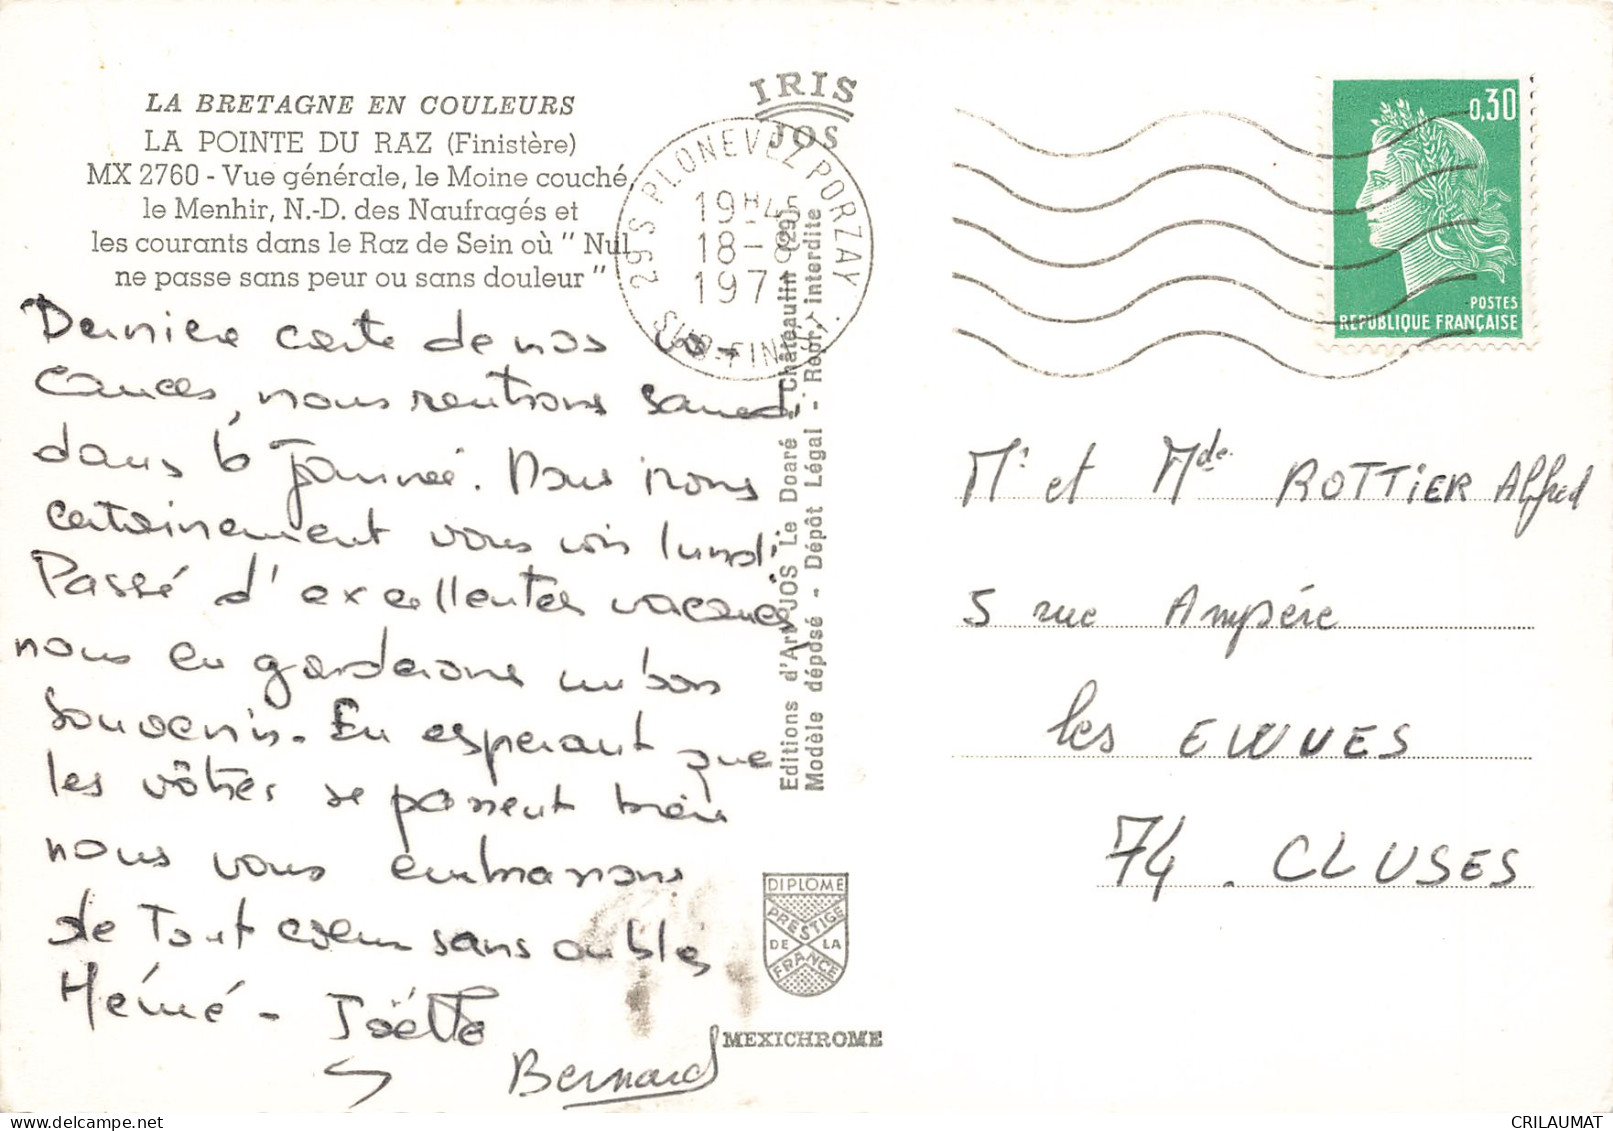 LA BRETAGNE EN COULEURS
LA POINTE DU RAZ (Finistère)
MX 2760 - Vue générale, le Moine couché,
le Menhir, N.-D. des Naufragés et
les courants dans le Raz de Sein où " Nul
ne passe sans peur ou sans douleur "
Dernière carte de nos va-
cances, nous rentrons samedi
dans la journée. Nous irons
certainement vous voir lundi.
Passé d'excellentes vacances,
nous en garderons un bon
souvenir. En espérant que
les vôtres se passent bien
nous vous embrassons
de tout coeur sans oublier
Hervé - Joëlle
Bernard
IRIS
JOS
29 S PLONEVEZ PORZAY
19H45
18-8
197
SUD-FINIST.
Editions d'Art JOS Le Doaré - Châteaulin (29)
Modèle déposé - Dépôt Légal - Repr. interdite
DIPLOME
PRESTIGE
DE LA
FRANCE
MEXICHROME
0,30
POSTES
REPUBLIQUE FRANÇAISE
Mr et Mde ROTTIER Alfred
5 rue Ampère
les EWUES
74. CLUSES
CRILAUMAT